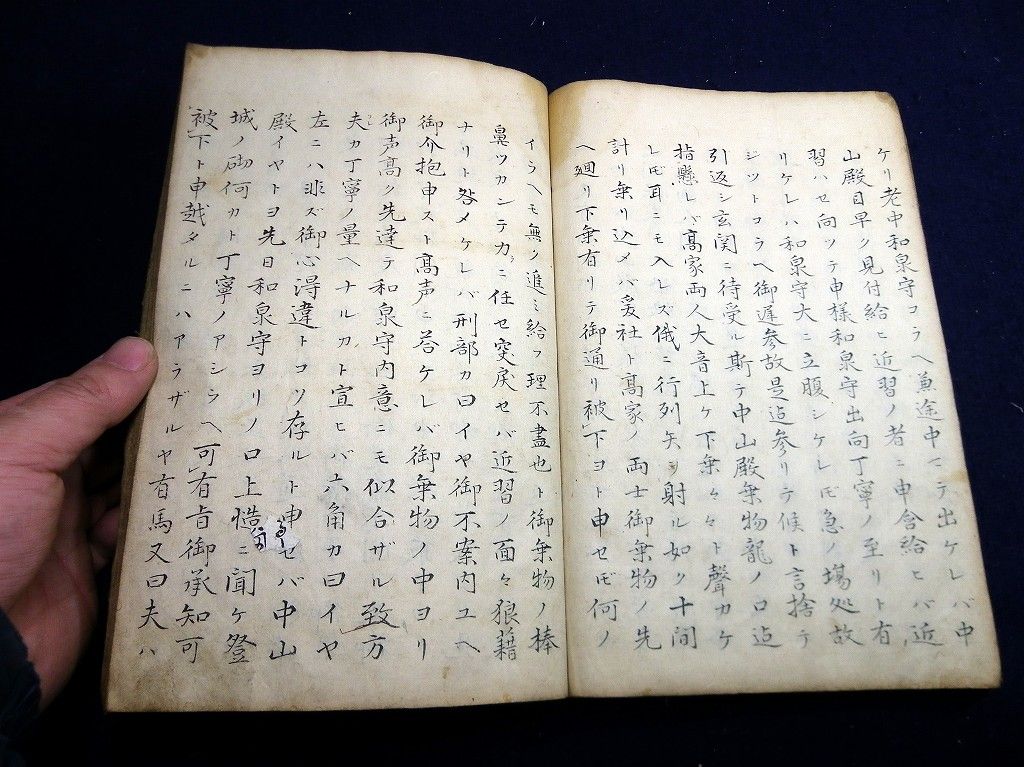 ケリ老中和泉守コラヘ兼途中マテ出ケレバ中
山殿目早ク見付給ヒ近習ノ者ニ申含給ヒバ近
習ハセ向ツテ申様和泉守出向丁寧ノ至リト有
リケレハ和泉守大ニ立腹シケレ𪜈急ノ場処故
ジツトコラヘ御遅参故是迠参リテ候ト言捨テ
引返シ玄関ニ待受ル斯テ中山殿乗物龍ノ口迠
指懸レバ高家両人大音上ケ下乗々々ト聲カケ
レ𪜈耳ニモ入レズ俄ニ行列矢ヲ射ル如ク十間
計リ乗リ込メバ爰社ト高家ノ両士御乗物ノ先
ヘ廻リ下乗有リテ御通リ被下ヨト申セ𪜈何ノ
イラヘモ無ク進ミ給フ理不盡也ト御乗物ノ棒
鼻ツカンテカニ任セ突戻セバ近習ノ面々狼藉
ナリト咎メケレバ刑部カ曰イヤ御不案内ユヘ
御介抱申スト高声ニ答ケレバ御乗物ノ中ヨリ
御声高ク先達テ和泉守内意ニモ似合ザル致方
夫カ丁寧ノ量ヘナルカト宣ヒバ六角カ曰イヤ
左ニハ非ズ御心得違トコソ存ルト申セバ中山
殿イヤトヨ先日和泉守ヨリノ口上慥ニ聞ケ登
城ノ砌何カト丁寧ノアシラヘ可有旨御承知可
被下ト申越タルニハアラザルヤ有馬又曰夫ハ